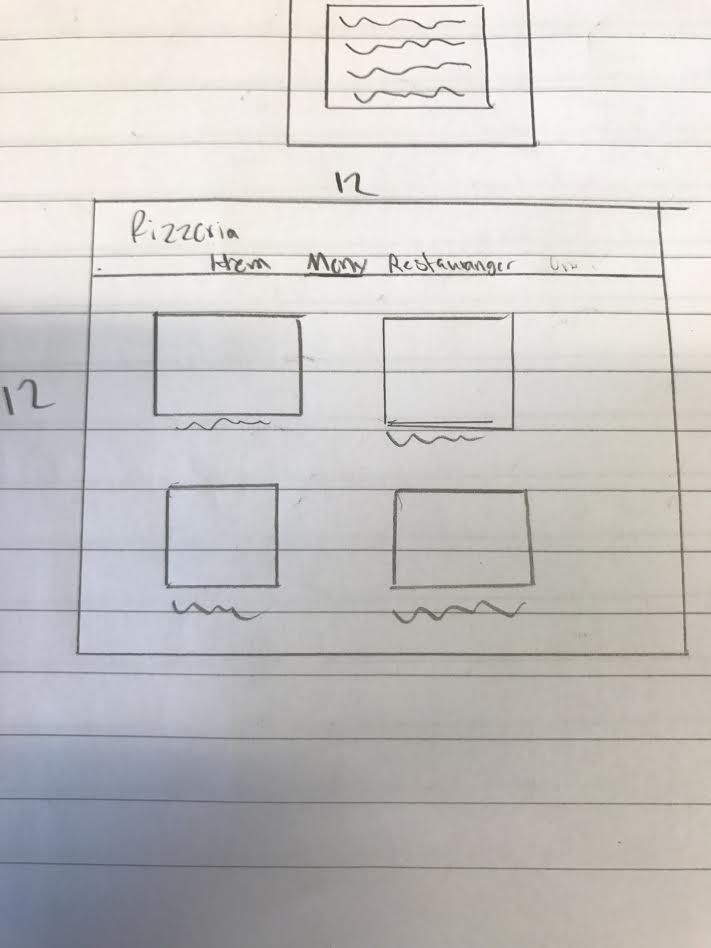 12
Pizzeria
Hem Meny Restauranger
12